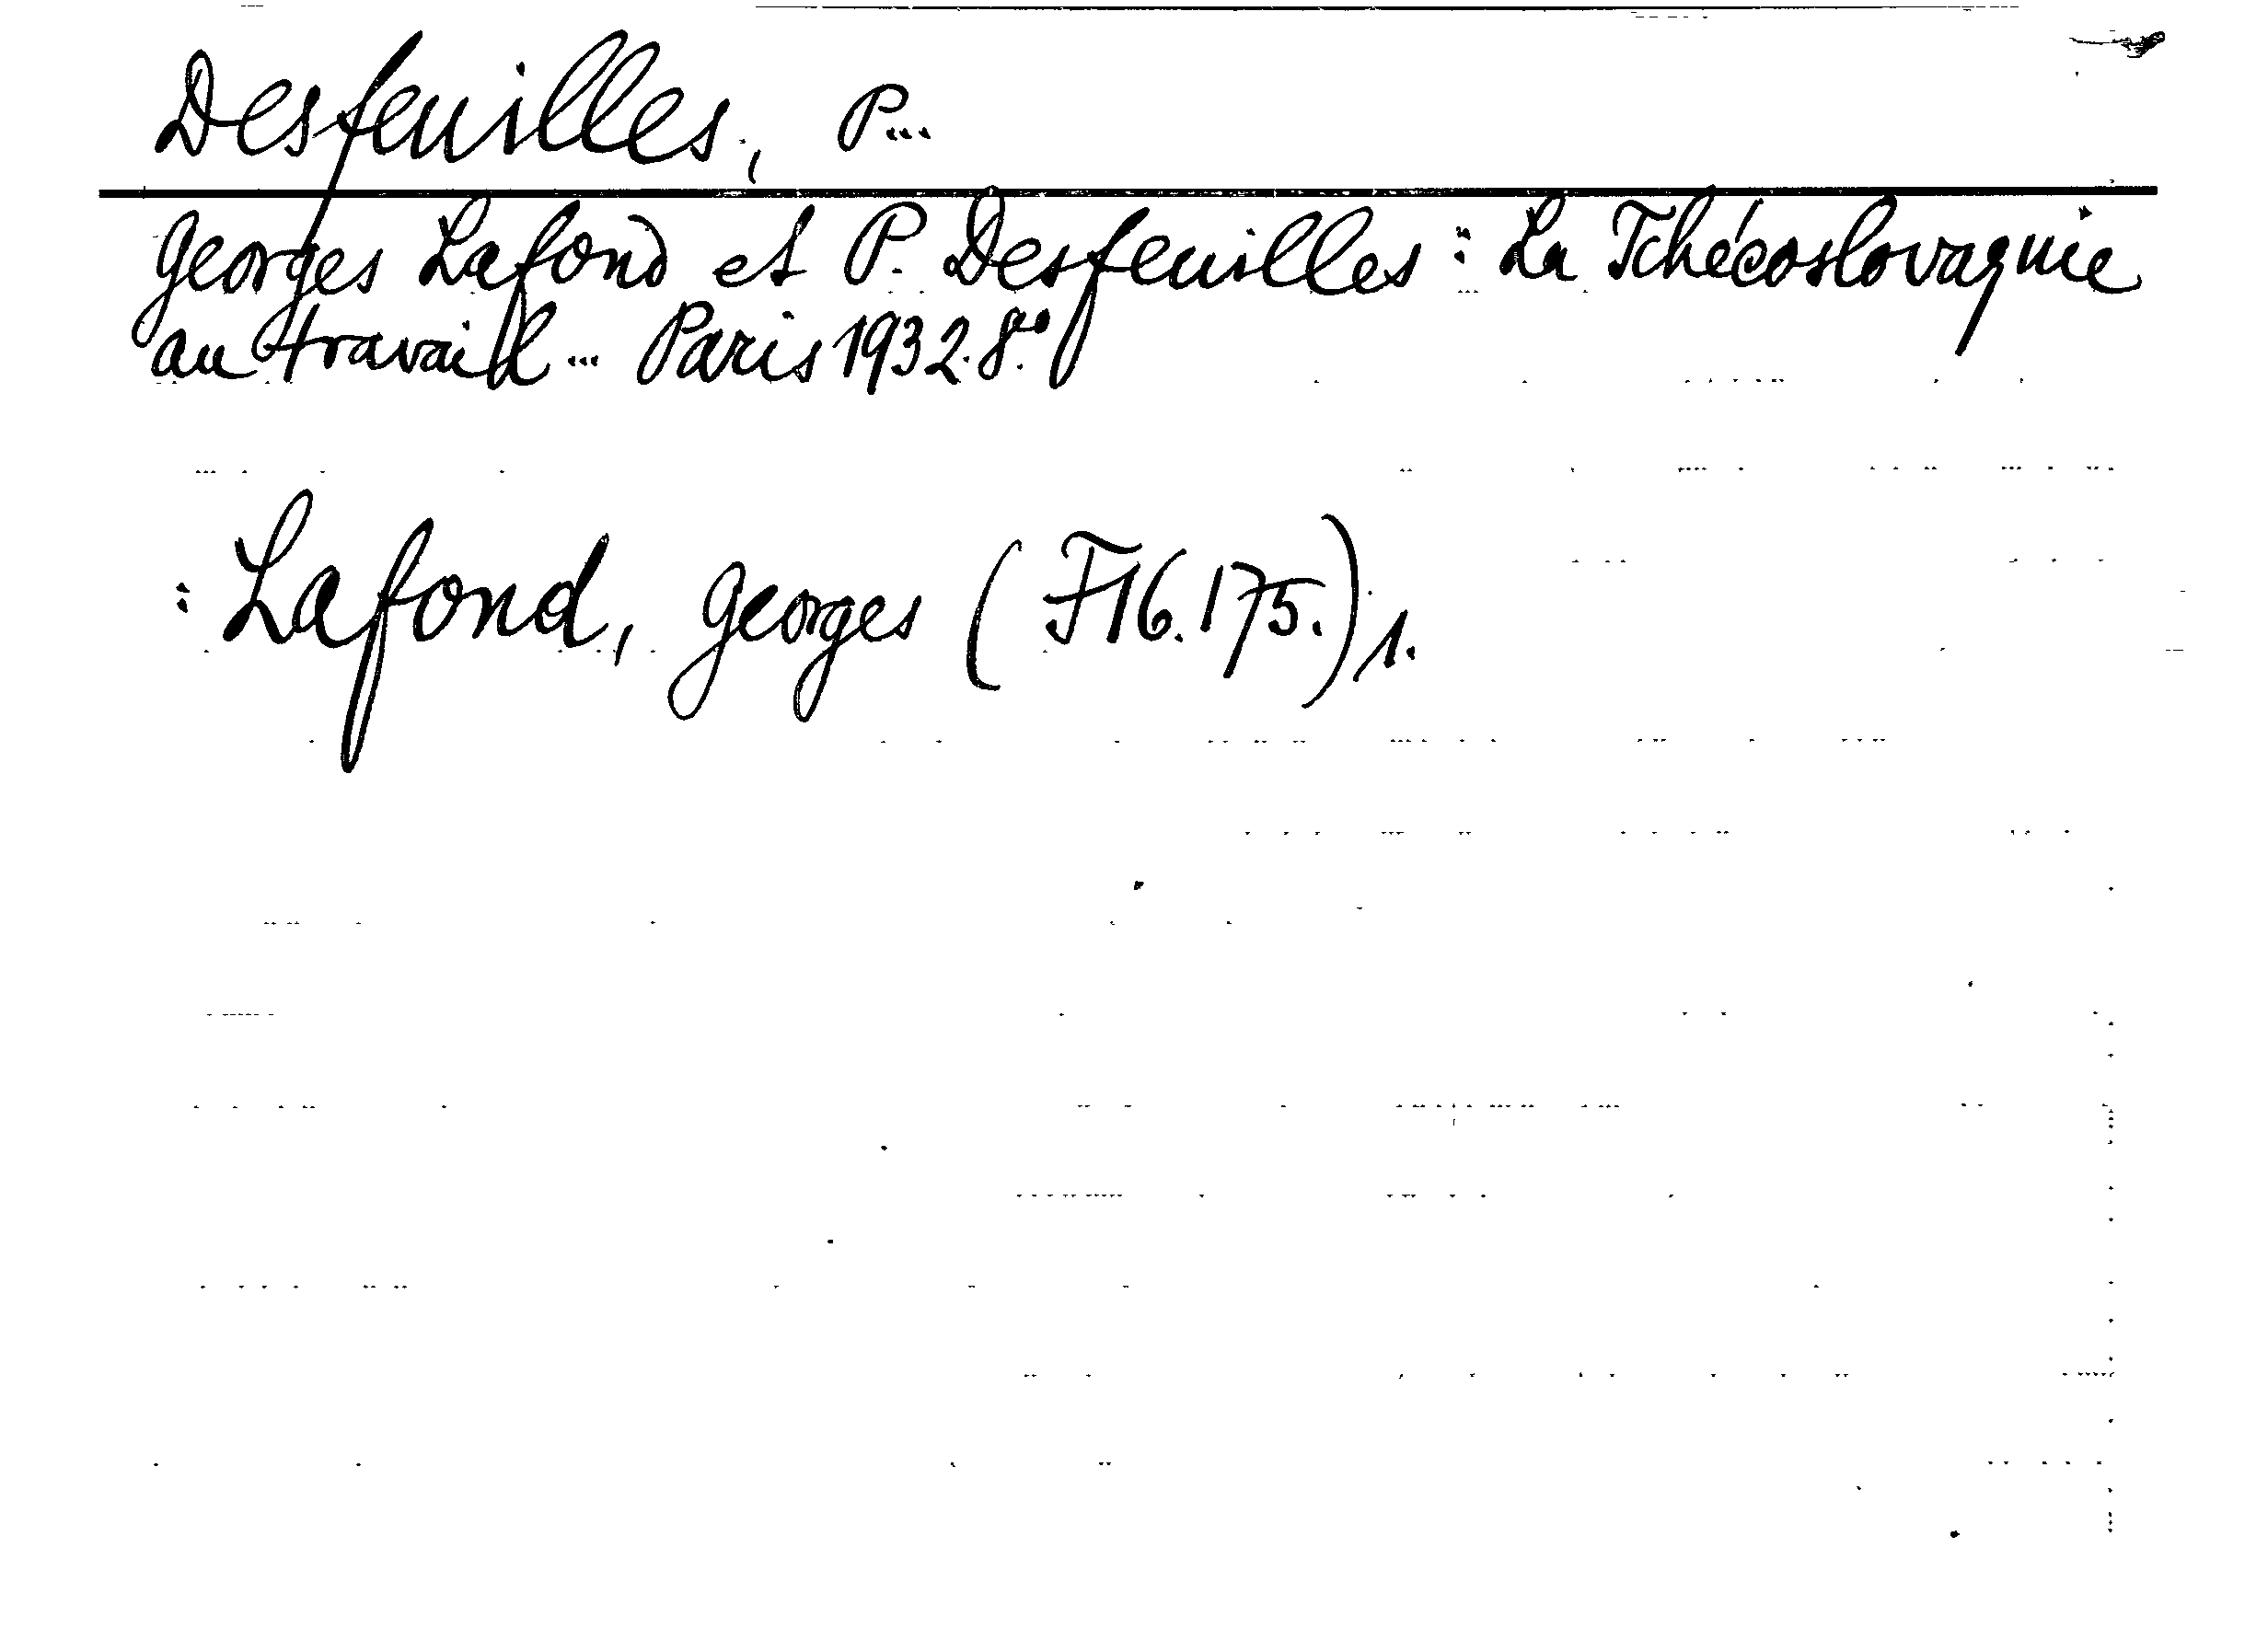 Desfeuilles, P...
Georges Lafond et P. Desfeuilles: La Tchécoslovaquie
au travail... Paris 1932. 8°.
: Lafond, Georges (F16.175.) 1.